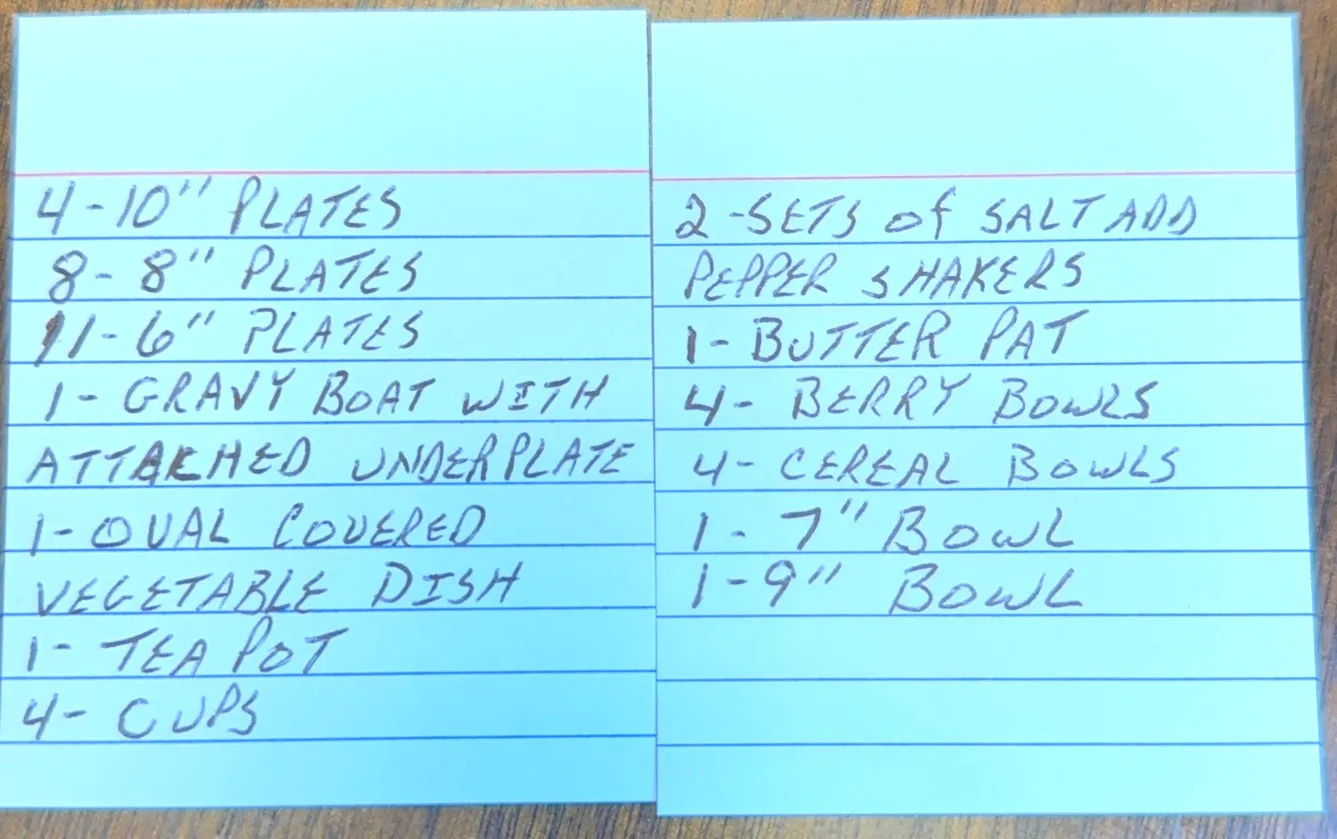 4-10" PLATES
8-8" PLATES
11-6" PLATES
1- GRAVY BOAT WITH
ATTACHED UNDERPLATE
1- OVAL COVERED
VEGETABLE DISH
1- TEA POT
4- CUPS
2-SETS of SALT AND
PEPPER SHAKERS
1- BUTTER PAT
4- BERRY BOWLS
4- CEREAL BOWLS
1- 7" BOWL
1-9" BOWL